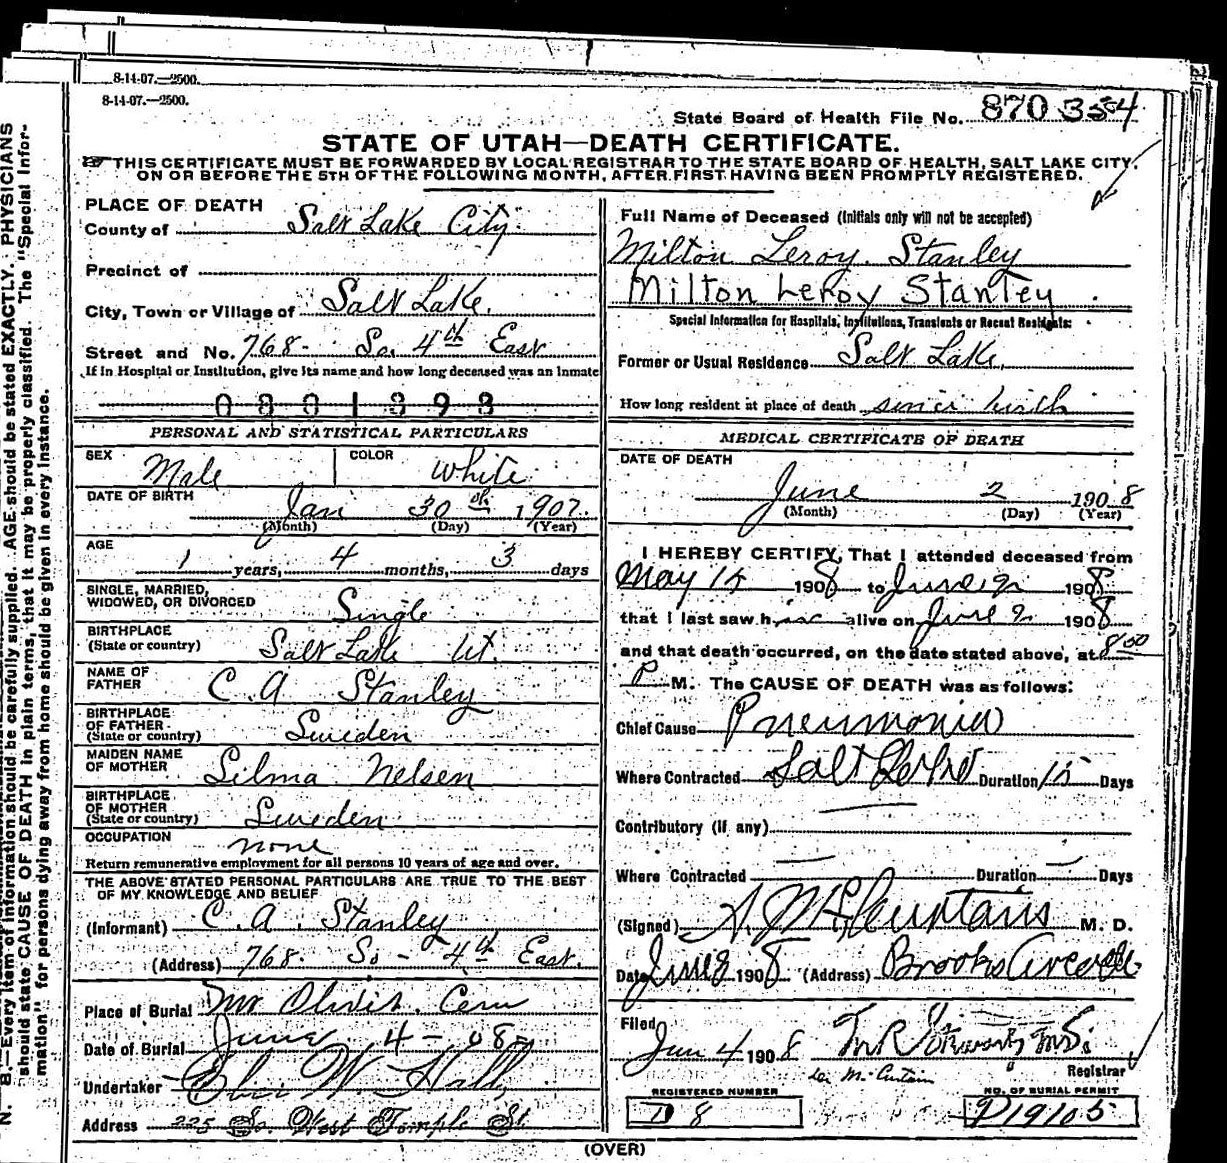 8-14-07.—2500.
8-14-07.—2500.
State Board of Health File No. 870 334
STATE OF UTAH—DEATH CERTIFICATE.
THIS CERTIFICATE MUST BE FORWARDED BY LOCAL REGISTRAR TO THE STATE BOARD OF HEALTH, SALT LAKE CITY,
ON OR BEFORE THE 5TH OF THE FOLLOWING MONTH, AFTER FIRST HAVING BEEN PROMPTLY REGISTERED.
N. B.—Every item of information should be carefully supplied. AGE should be stated EXACTLY. PHYSICIANS
should state CAUSE OF DEATH in plain terms, that it may be properly classified. The "Special Infor-
mation" for persons dying away from home should be given in every instance.
PLACE OF DEATH
County of Salt Lake City
Precinct of
City, Town or Village of Salt Lake.
Street and No. 768- So. 4th East
If in Hospital or Institution, give its name and how long deceased was an inmate
0801393
PERSONAL AND STATISTICAL PARTICULARS
SEX Male COLOR White
DATE OF BIRTH Jan 30th 1907.
(Month) (Day) (Year)
AGE 1 years, 4 months, 3 days
SINGLE, MARRIED,
WIDOWED, OR DIVORCED Single
BIRTHPLACE
(State or country) Salt Lake Ut.
NAME OF
FATHER C. A Stanley
BIRTHPLACE
OF FATHER
(State or country) Sweden
MAIDEN NAME
OF MOTHER Silma Nelsen
BIRTHPLACE
OF MOTHER
(State or country) Sweden
OCCUPATION none
Return remunerative employment for all persons 10 years of age and over.
THE ABOVE STATED PERSONAL PARTICULARS ARE TRUE TO THE BEST
OF MY KNOWLEDGE AND BELIEF
(Informant) C. A. Stanley
(Address) 768- So - 4th East.
Place of Burial Mt Olivet. Cem
Date of Burial June 4-08-
Undertaker W. Hall
Address 225 So. West Temple St
Full Name of Deceased (Initials only will not be accepted)
Milton Leroy. Stanley
Milton Leroy Stanley
Special Information for Hospitals, Institutions, Transients or Recent Residents:
Former or Usual Residence Salt Lake,
How long resident at place of death since birth
MEDICAL CERTIFICATE OF DEATH
DATE OF DEATH
June 2 1908
(Month) (Day) (Year)
I HEREBY CERTIFY, That I attended deceased from
May 15 1908 to June 2 1908
that I last saw him alive on June 2 1908
and that death occurred, on the date stated above, at 8:00
P M. The CAUSE OF DEATH was as follows:
Chief Cause Pneumonia
Where Contracted Salt Lake Duration 15 Days
Contributory (if any)
Where Contracted Duration Days
(Signed) M. D.
Date June 1908 (Address) Brooks Arcade
Filed
Jun 4 1908
Registrar
REGISTERED NUMBER
D 8
NO. OF BURIAL PERMIT
D19105
(OVER)